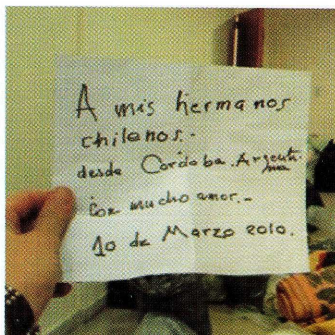 A mis hermanos
chilenos.-
desde Cordoba. Argentina
con mucho amor.-
10 de Marzo 2010.